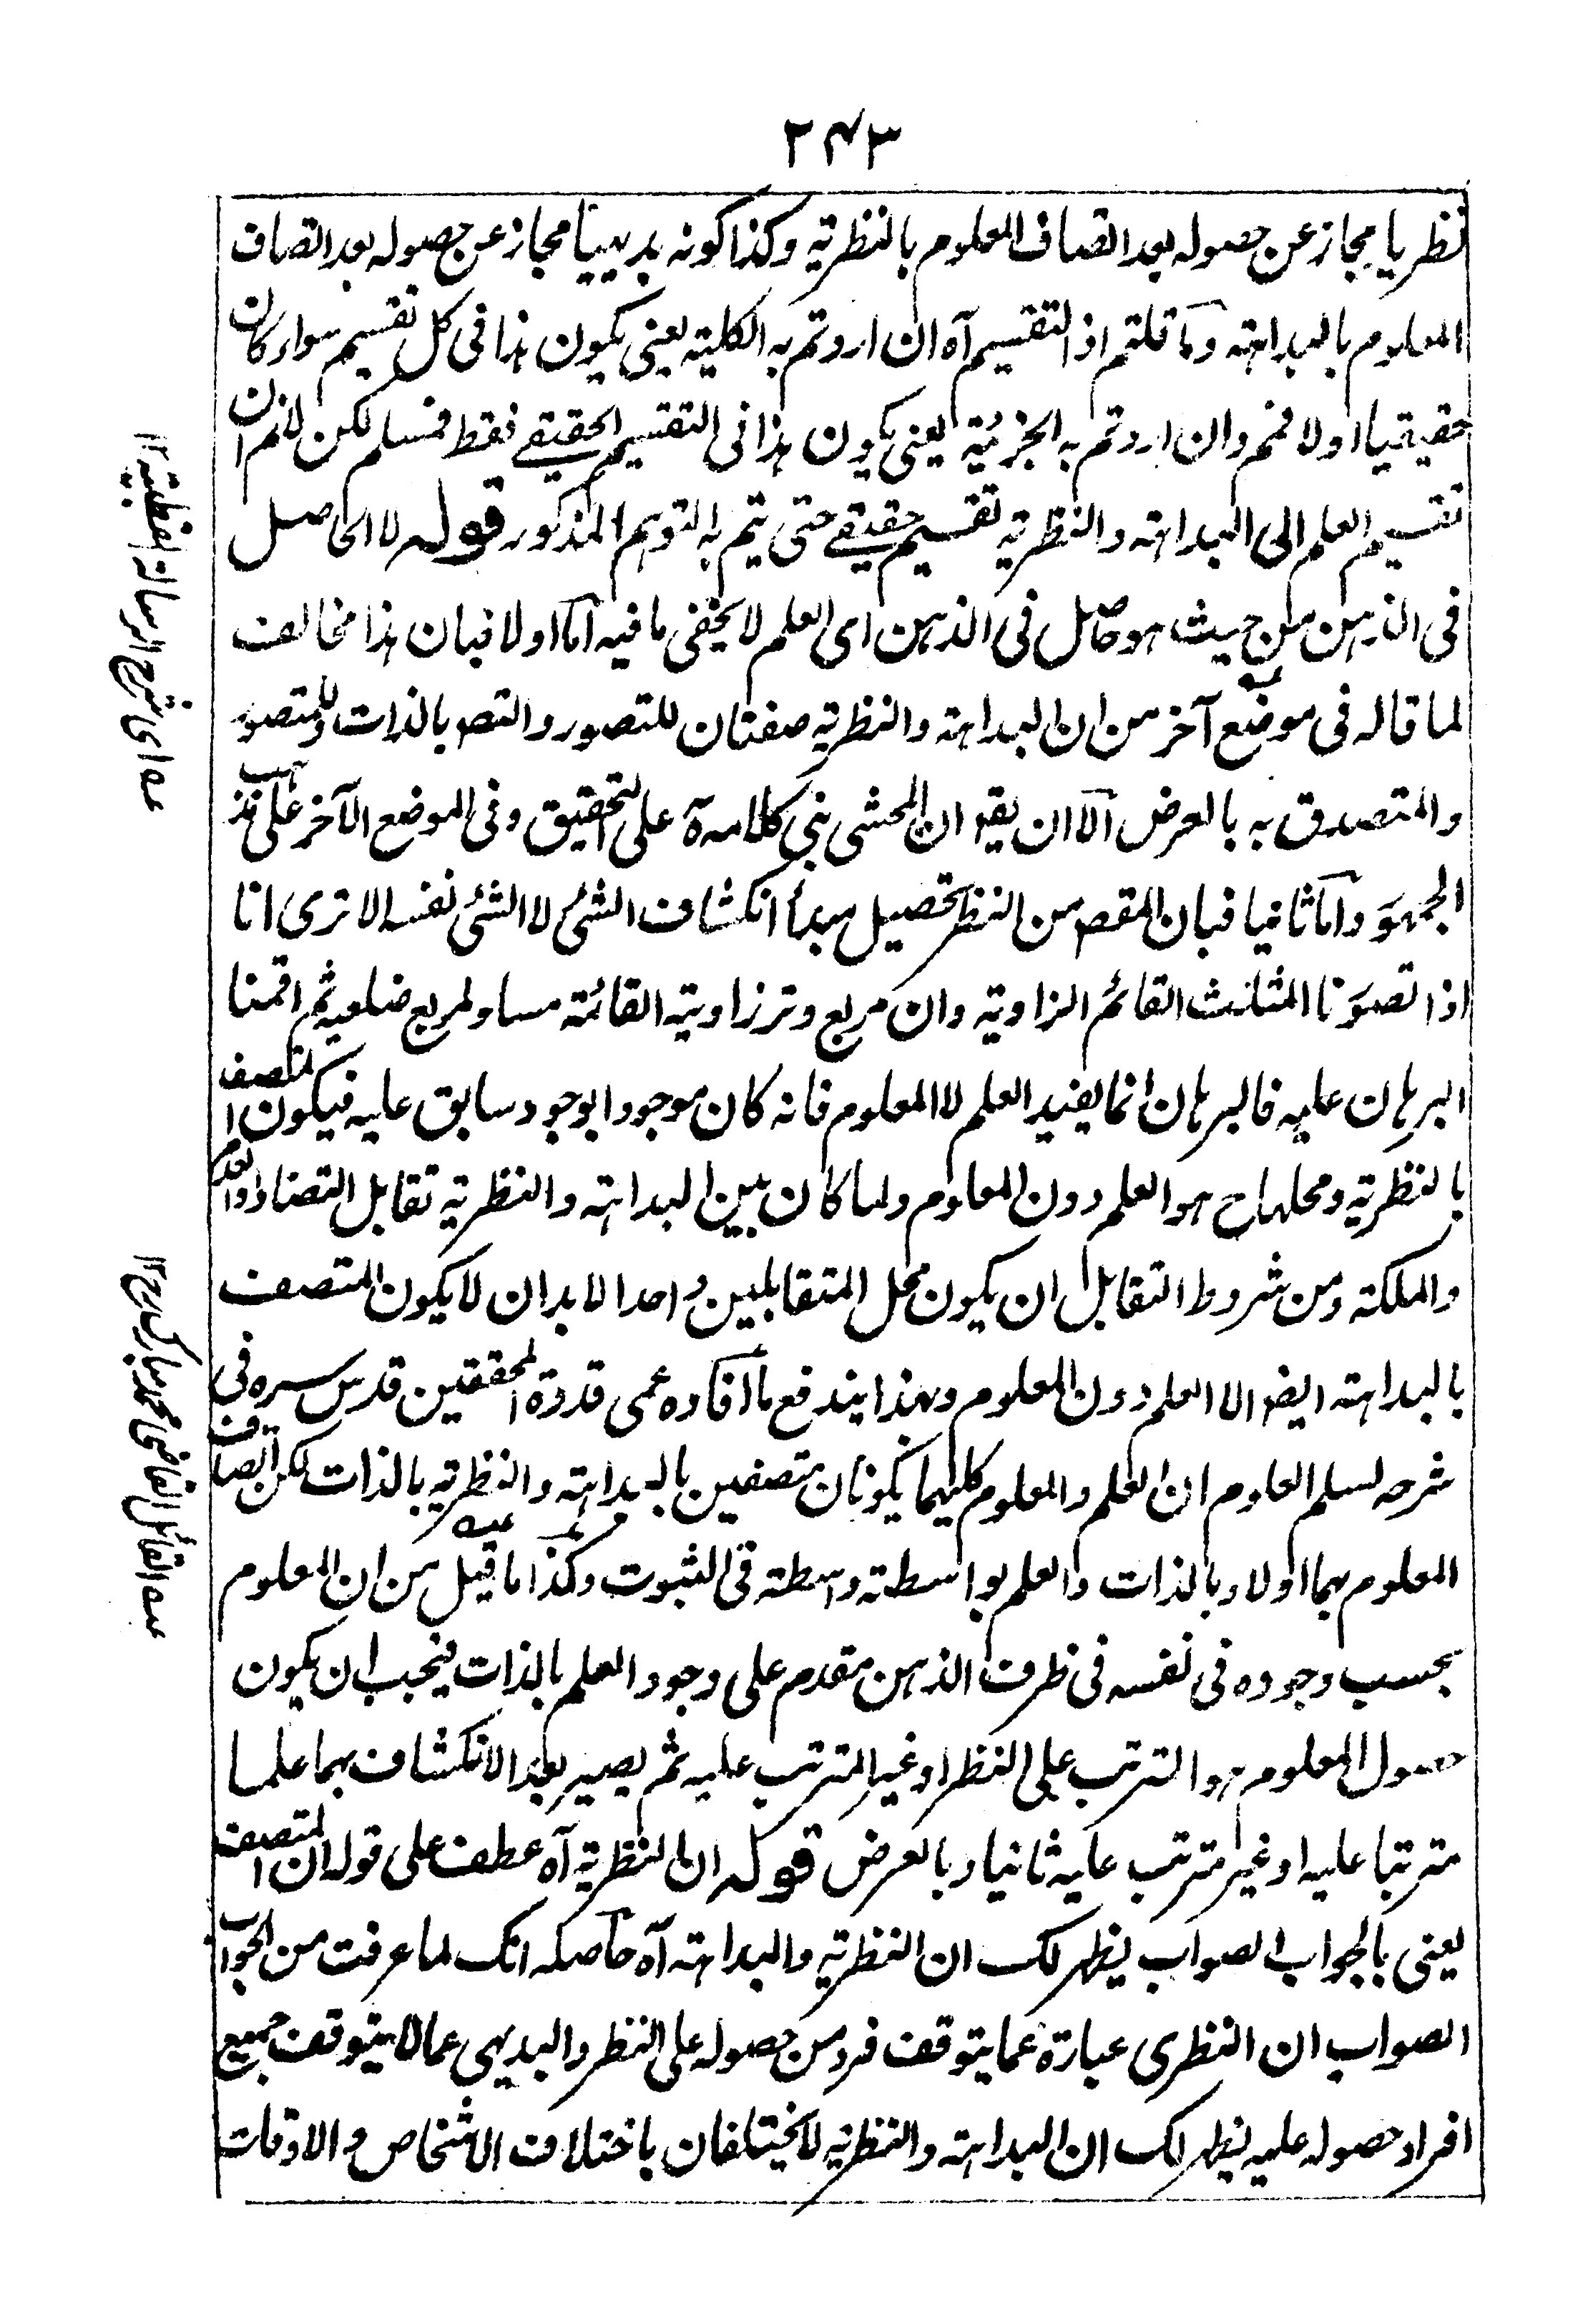 ٢٤٣
نظريا مجاز عن حصوله بعد اتصاف المعلوم بالنظرية وكذا كونه بديهيا مجاز عن حصوله بعد اتصاف
المعلوم بالبداهته وما قلتم اذ التقسيم آه ان اردتم به الكلية يعني يكون هذا في كل تقسيم سواء كان
حقيقيا اولا فمم وان اردتم به الجزئية يعني يكون هذا في التقسيم الحقيقي فقط فمسلم لكن لانم ان
تقسيم العلم الى البداهته والنظرية تقسيم حقيقي حتى يتم به التوهم المذكور قوله لا الحاصل
في الذهن من حيث هو حاصل في الذهن اى العلم لا يخفى ما فيه اما اولا فبان هذا مخالف
لما قاله في موضع آخر من ان البداهته والنظرية صفتان للتصور والتصـ بالذات وللمتصور
والمتصدق به بالعرض الا ان يقو ان المحشى بنى كلامه آه على التحقيق وفي الموضع الآخر على مذهب
الجمهو واما ثانيا فبان المقصـ من النظر تحصيل مبدأ انكشاف الشئ لا الشئ نفسه الا ترى انا
اذا تصورنا المثلث القائم الزاوية وان مربع وتر زاوية القائمة مساو لمربع ضلعيه ثم اقمنا
البرهان عليه فالبرهان انما يفيد العلم لا المعلوم فانه كان موجودا بوجود سابق عليه فيكون المتصف
بالنظرية ومحلها ح هو العلم دون المعلوم ولما كان بين البداهته والنظرية تقابل التضاد او العدم
والملكة ومن شروط التقابل ان يكون محل المتقابلين واحدا لابد ان لا يكون المتصف
بالبداهته ايضـ الا العلم دون المعلوم وبهذا يندفع ما افاده عمى قدوة المحققين قدس سره في
شرحه لسلم العلوم ان العلم والمعلوم كليهما يكونان متصفين بالبداهته والنظرية بالذات لكن اتصاف
المعلوم بهما اولا وبالذات والعلم بواسطته واسطة في الثبوت وكذا ما قيل من ان المعلوم
بحسب وجوده في نفسه في ظرف الذهن مقدم على وجود العلم بالذات فيجب ان يكون
حصول المعلوم هو المترتب على النظر او غير المترتب عليه ثم يصير بعد الانكشاف بهما علما
مترتبا عليه او غير مترتب عليه ثانيا وبالعرض قوله ان النظرية آه عطف على قوله ان المتصف
يعني بالجواب الصواب يظهر لك ان النظرية والبداهته آه حاصله انك لما عرفت من الجواب
الصواب ان النظرى عبارة عما يتوقف فرد من حصوله على النظر والبديهى عمالا يتوقف جميع
افراد حصوله عليه يظهر لك ان البداهته والنظرية لا يختلفان باختلاف الاشخاص والاوقات
ـه اى شرح الرسالة القطبية ١٢
ـه القائل القاضى محمد مبارك رح ١٢